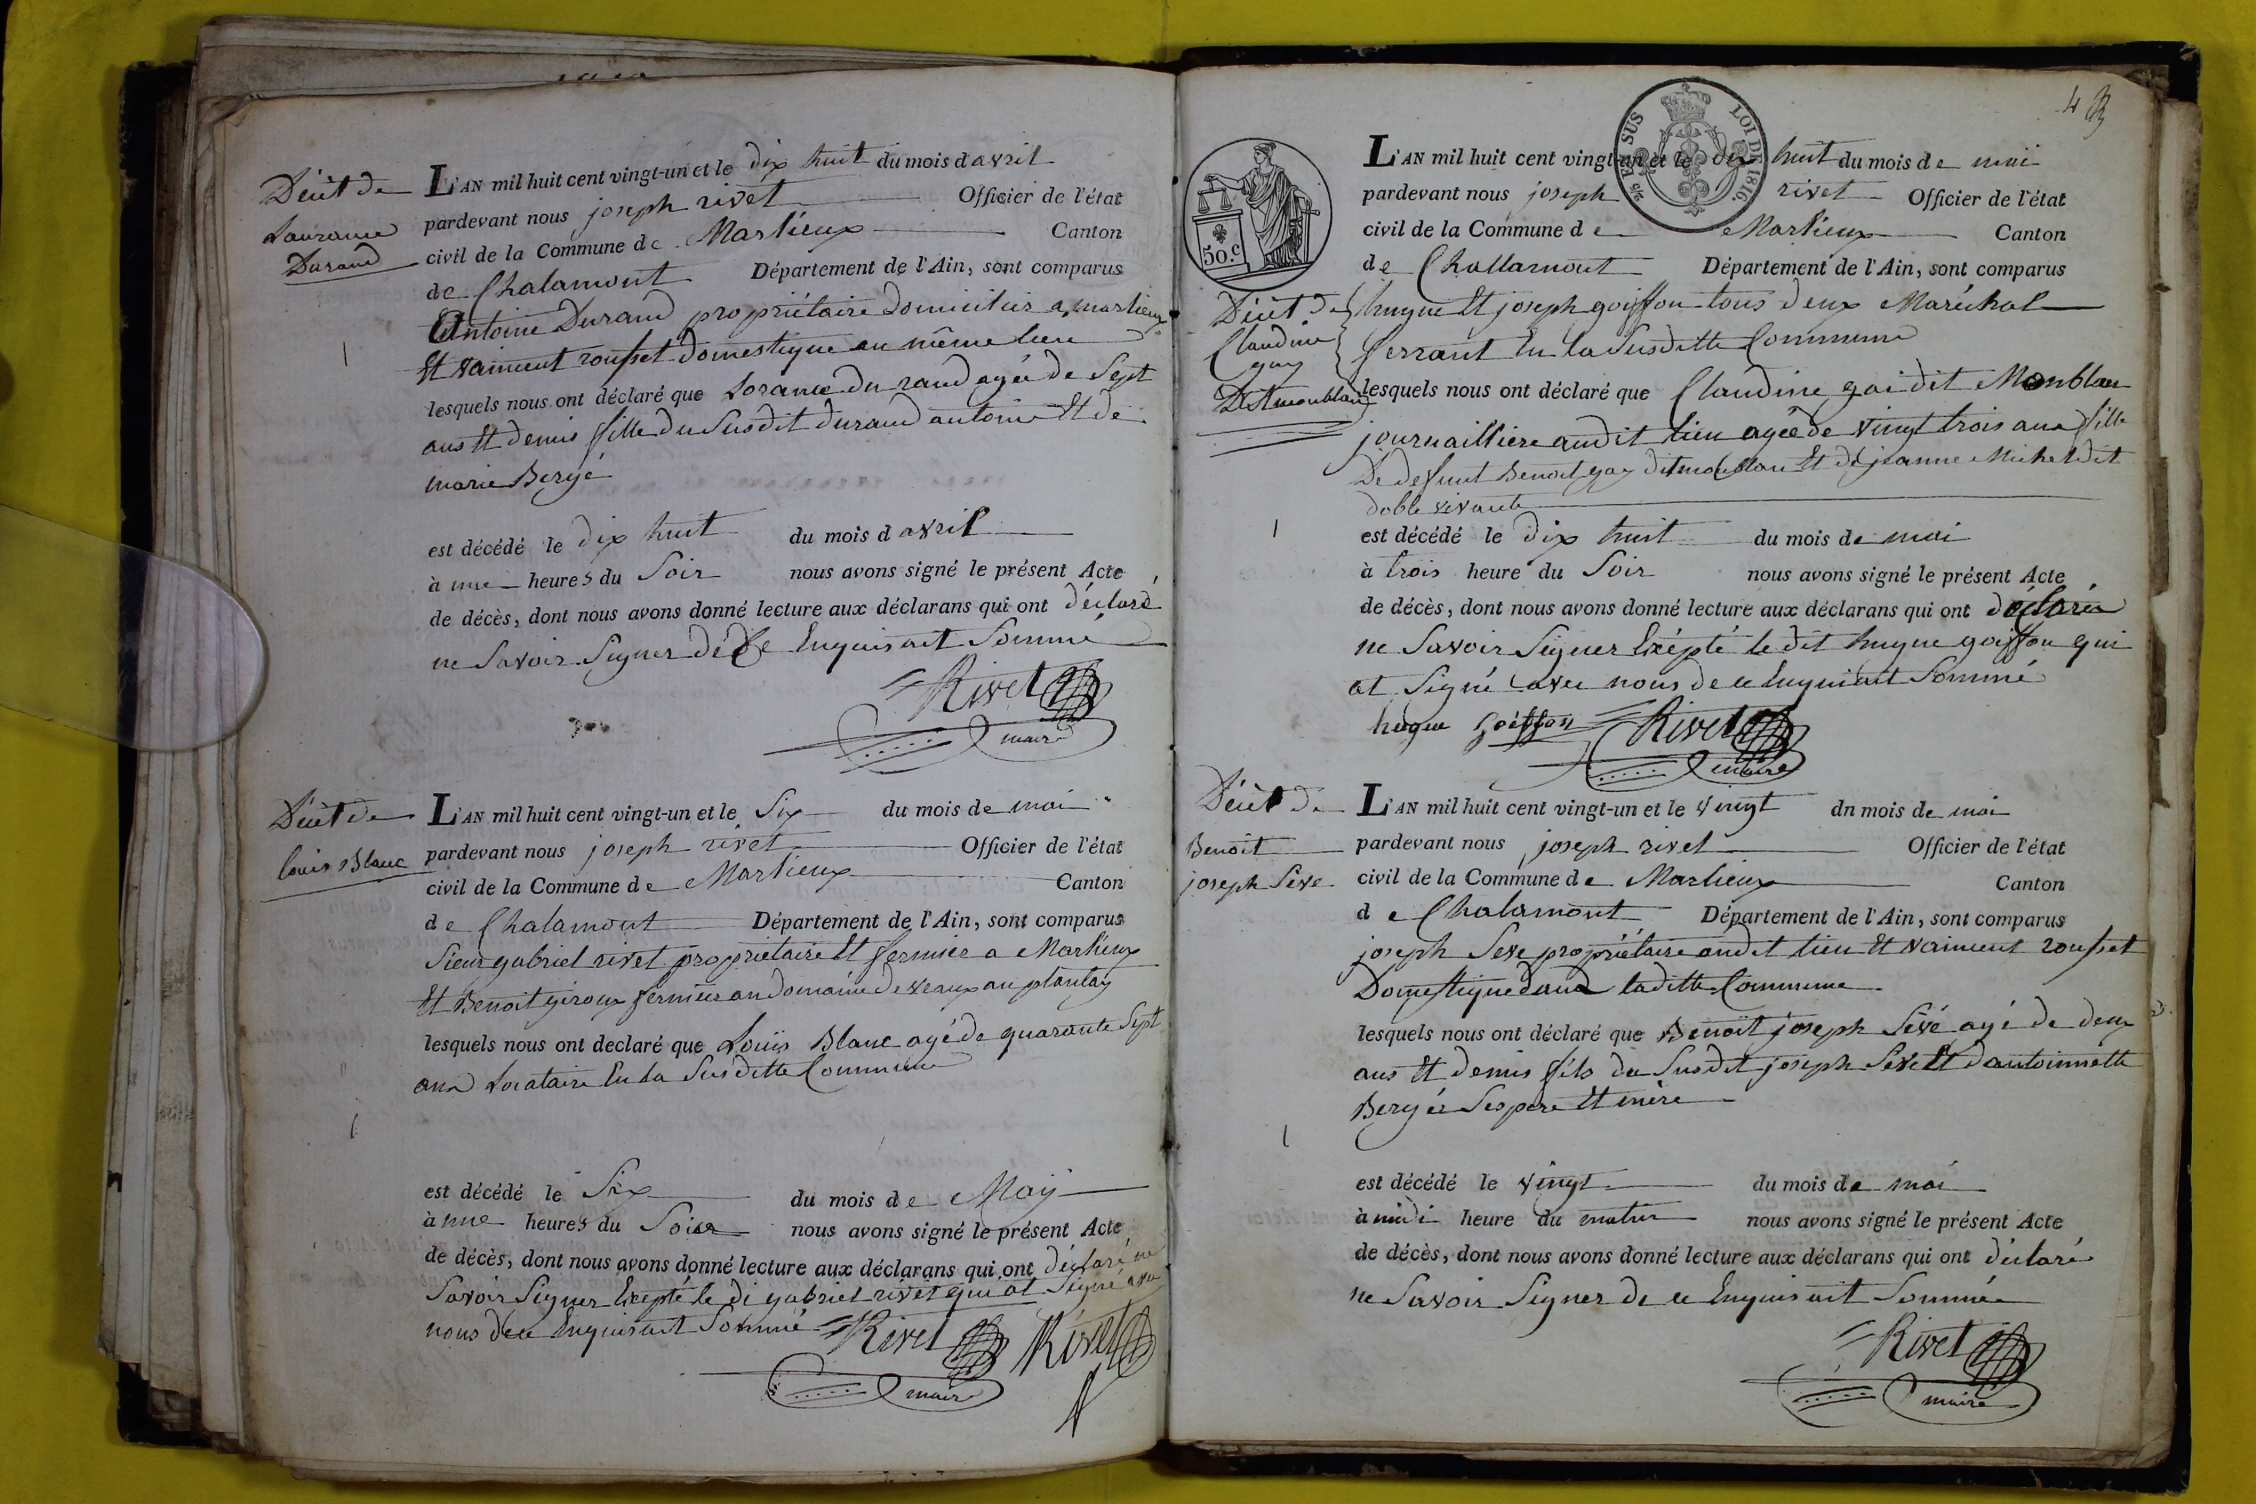 Décèt de
Laurance
Durand
L'AN mil huit cent vingt-un et le dix huit du mois d avril
pardevant nous joseph rivet Officier de l'état
civil de la Commune de Marlieux Canton
de Chalamont Département de l'Ain, sont comparus
Antoine Durand propriétaire domicilier a marlieux
Et vaincent rousset domestique au même lieu
lesquels nous ont déclaré que Lorance du rand agée de Sept
ans Et demis fille du Susdit durand antoine Et de
marie Bergé
est décédé le dix huit du mois d avril
à une heures du Soir nous avons signé le présent Acte
de décès, dont nous avons donné lecture aux déclarans qui ont déclaré
ne Savoir Signer de ce Enquis ait Sommé
Rivet
maire
Décèt de
louis Blanc
L'AN mil huit cent vingt-un et le Six du mois de mai
pardevant nous joseph rivet Officier de l'état
civil de la Commune de Marlieux Canton
de Chalamont Département de l'Ain, sont comparus
Sieur gabriel rivet propriétaire Et fermier a Marlieux
Et Benoit giroux fermier au domaine de veaux au plantay
lesquels nous ont declaré que Louis Blanc agé de quarante Sept
ans Locataire En la Susditte Commune
est décédé le Six du mois de May
à une heures du Soir nous avons signé le présent Acte
de décès, dont nous avons donné lecture aux déclarans qui ont déclaré ne
Savoir Signer Exepté le di gabriel rivet qui at Signé avec
nous de ce Enquis ait Sommé Rivet Rivet
maire
4
50.c
EN SUS LOI DE 1816.
L'AN mil huit cent vingt-un et le dix huit du mois de mai
pardevant nous joseph rivet Officier de l'état
civil de la Commune de Marlieux Canton
de Challamont Département de l'Ain, sont comparus
Décèt de
Claudine
gay
Dit monblan
hugue Et joseph goiffon tous deux Maréchal
ferrant En la Susditte Commune
lesquels nous ont déclaré que Claudine gai dit Monblan
journaillière audit lieu agée de vingt trois ans fille
De defunt Benoit gay dit monblan Et de jeanne Michel dit
doble vivante
est décédé le dix huit du mois de mai
à trois heure du Soir nous avons signé le présent Acte
de décès, dont nous avons donné lecture aux déclarans qui ont déclarér
ne Savoir Signer Exépté le dit hugue goiffon qui
at Signé avec nous de ce Enquis ait Sommé
hugue goiffon Rivet
maire
Décèt de
Benoit
joseph Seve
L'AN mil huit cent vingt-un et le vingt dn mois de mai
pardevant nous joseph rivet Officier de l'état
civil de la Commune de Marlieux Canton
de Chalamont Département de l'Ain, sont comparus
joseph Seve propriétaire audit lieu Et vaincent rousset
Domestique dans laditte Commune
lesquels nous ont déclaré que Benoit joseph Sévé agé de deux
ans Et demis fils du Susdit joseph Seve Et dantoinnette
Bergér Ses pere Et mère
est décédé le vingt du mois de mai
à midi heure du matin nous avons signé le présent Acte
de décès, dont nous avons donné lecture aux déclarans qui ont déclaré
ne Savoir Signer de ce Enquis ait Sommé
Rivet
maire